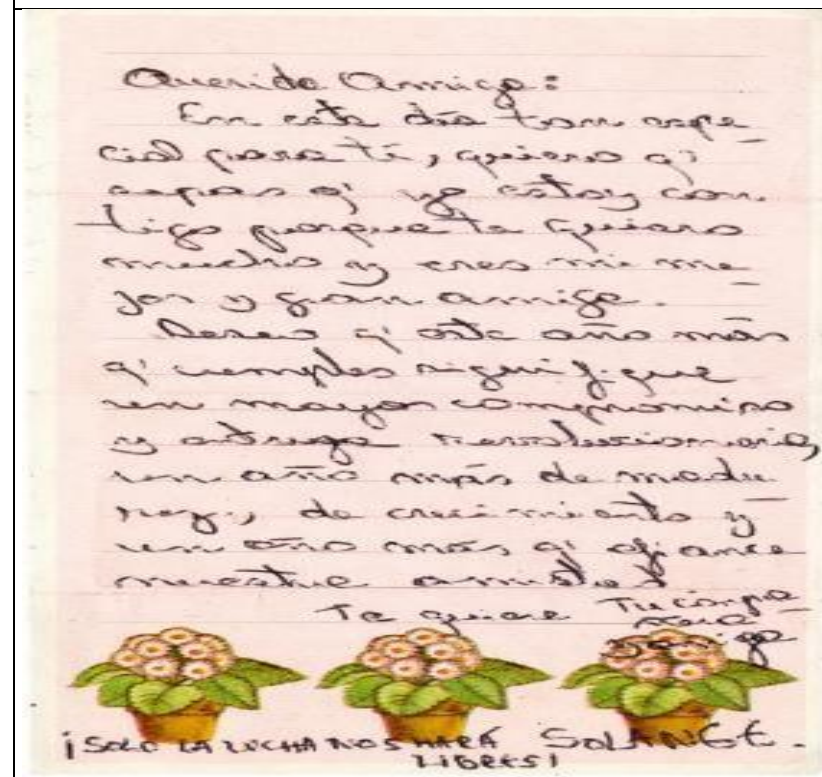 Querido Amigo:
En este día tan espe-
cial para ti, quiero q'
sepas q' yo estoy con-
tigo porque te quiero
mucho y eres mi me-
jor y gran amigo.
Deseo q' este año más
q' cumples signifique
un mayor compromiso
y entrega revolucionaria,
un año más de madu-
rez, de crecimiento y
un año más q' afiance
nuestra amistad
Te quiere Tu compa-
ñera
y amiga
SOLANGE.
¡SOLO LA LUCHA NOS HARÁ
LIBRES!